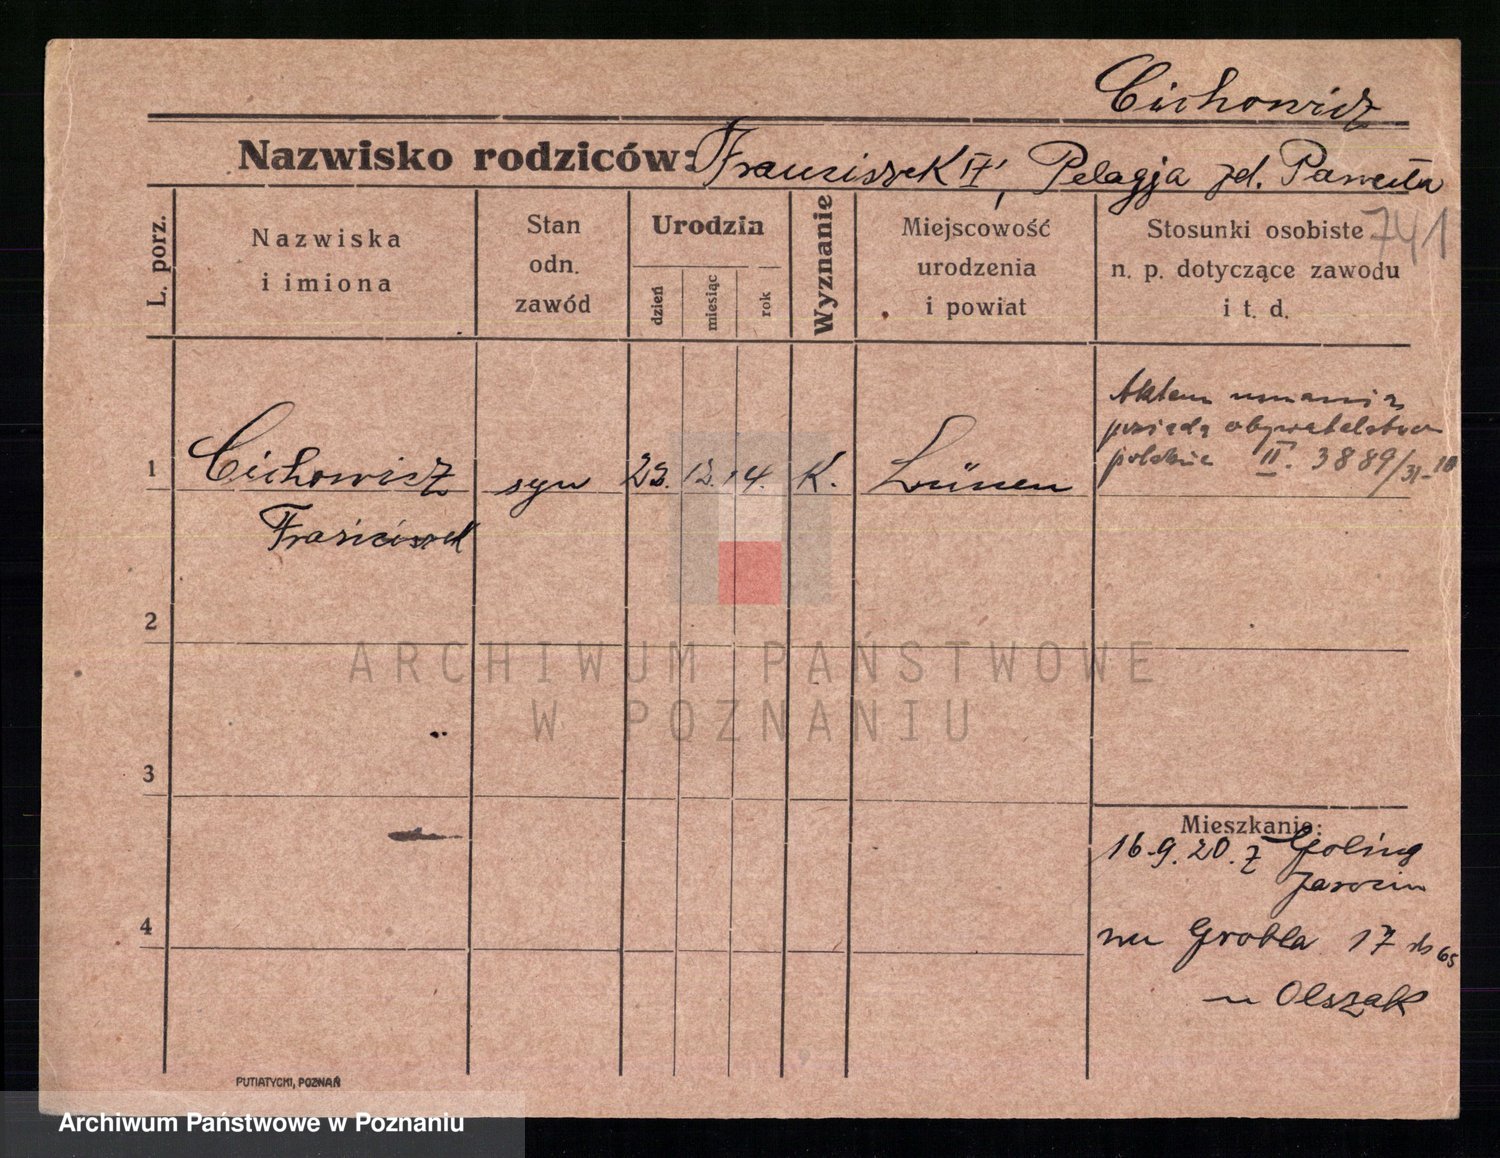 Cichowicz
Nazwisko rodziców: Franciszek Pelagja zd. Pawela
741
L. porz.
Nazwiska
i imiona
Stan
odn.
zawód
Urodzin
dzień
miesiąc
rok
Wyznanie
Miejscowość
urodzenia
i powiat
Stosunki osobiste
n. p. dotyczące zawodu
i t. d.
Aktem uznania
posiada obywatelstwo
polskie II. 3889/31
1 Cichowicz syn 23. 12. 14. K. Lünen
Franciszek
2
3
4
Mieszkanie:
16.9.20. z Golina
Jarocin
na Grobla 17
u Olszak
PUTIATYCKI, POZNAŃ
ARCHIWUM PAŃSTWOWE
W POZNANIU
Archiwum Państwowe w Poznaniu